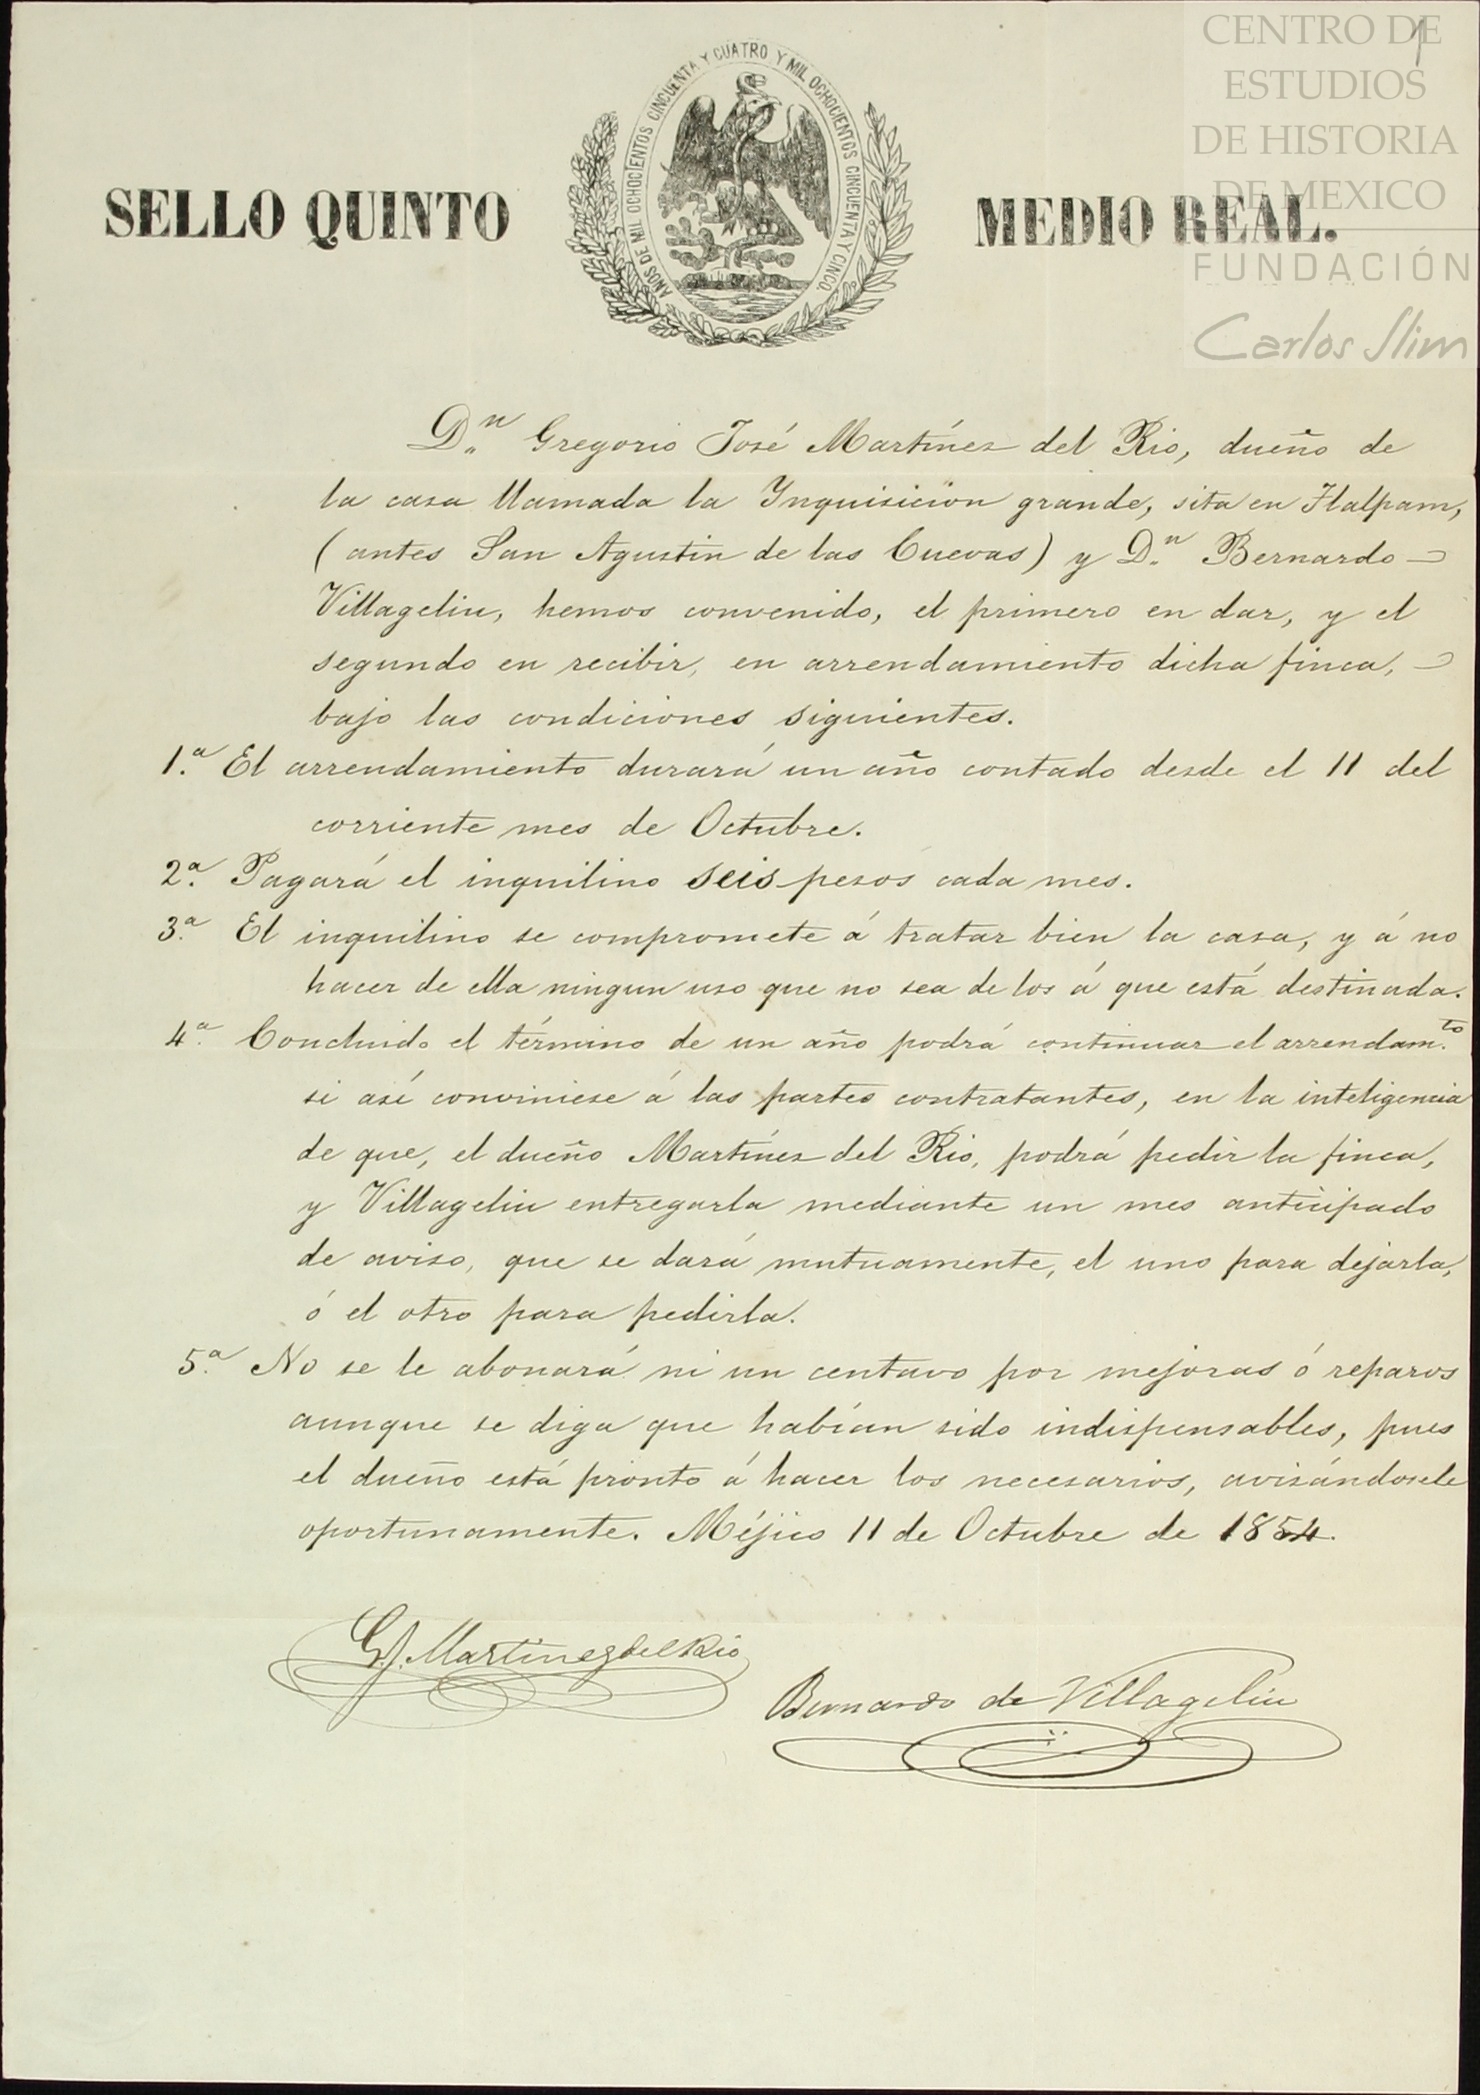 CENTRO DE
ESTUDIOS
DE HISTORIA
DE MEXICO
FUNDACIÓN
Carlos Slim
1
AÑOS DE MIL OCHOCIENTOS CINCUENTA Y CUATRO Y MIL OCHOCIENTOS CINCUENTA Y CINCO.
SELLO QUINTO MEDIO REAL.
D.n Gregorio José Martínez del Rio, dueño de
la casa llamada la Ynquisicion grande, sita en Tlalpam,
(antes San Agustin de las Cuevas) y D.n Bernardo
Villagelin, hemos convenido, el primero en dar, y el
segundo en recibir, en arrendamiento dicha finca,
bajo las condiciones siguientes.
1.a El arrendamiento durará un año contado desde el 11 del
corriente mes de Octubre.
2.a Pagará el inquilino seis pesos cada mes.
3.a El inquilino se compromete á tratar bien la casa, y á no
hacer de ella ningun uso que no sea de los á que está destinada.
4.a Concluido el término de un año podrá continuar el arrendam.to
si así conviniese á las partes contratantes, en la inteligencia
de que, el dueño Martínez del Rio, podrá pedir la finca,
y Villagelin entregarla mediante un mes anticipado
de aviso, que se dará mutuamente, el uno para dejarla,
ó el otro para pedirla.
5.a No se le abonará ni un centavo por mejoras ó reparos
aunque se diga que habían sido indispensables, pues
el dueño está pronto á hacer los necesarios, avisándosele
oportunamente. Méjico 11 de Octubre de 1854.
G. J. Martinez del Rio
Bernardo de Villagelin